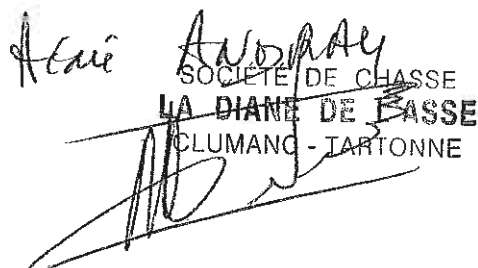 ANDRAY
SOCIÉTÉ DE CHASSE
LA DIANE DE BASSE
CLUMANC - TARTONNE